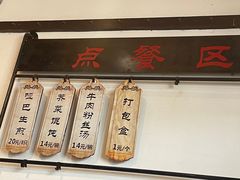 点餐区
哑巴生煎
20元/8只
荠菜馄饨
14元/碗
牛肉粉丝汤
14元/碗
打包盒
1元/个